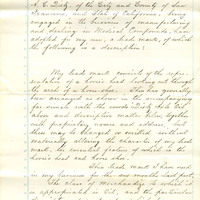 of the City and County of San
Francisco and State of California, being
engaged in the business of manufacturing
and dealing in Medical Compounds, have
adopted for my use, a trade mark, of which
the following is a description:
My trade mark consists of the repre-
sentation of a horse's head looking out through
the arch of a horse shoe. This has generally
been arranged as shown in the accompanying
above and descriptive matter below, together
with proprietary name and address, but
these may be changed or omitted without
materially altering the character of my trade
mark, the essential feature of which is the
horse's head and horse shoe.
This trade mark I have used
in my business for the six months last past.
The class of Merchandise to which it
is appropriated is Oil, and the particular